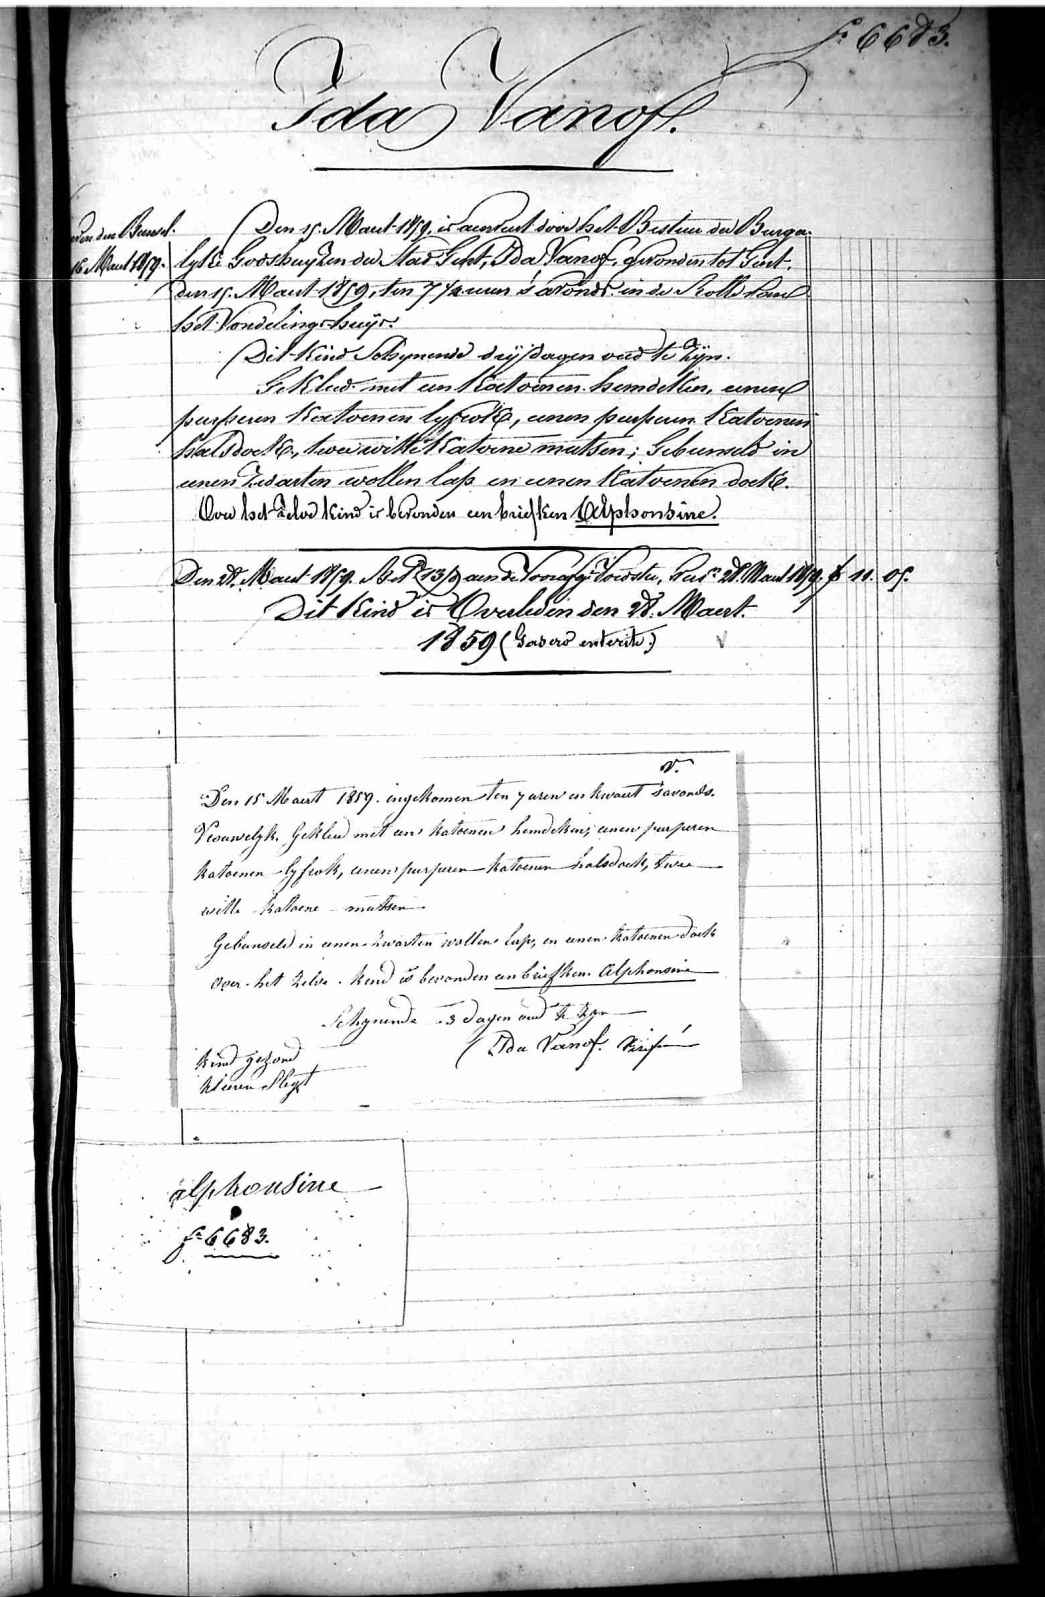 fº 6683.
Ida Vanof.
Den 15. Maert 1859. is aenveert door het Bestuer der Burger-
16 Maert 1859.
lyke Godshuyzen der Stad Gent, Ida Vanof, gevonden tot Gent,
den 15. Maert 1859, ten 7 1/4 uren s'avonds in de Rolle van
het Vondelingshuijs.
Dit Kind Schynende drij dagen oud te Zijn.
Gekleed met een Katoenen hemdeken, eenen
purperen Katoenen lyfrok, eenen purperen Katoenen
halsdoek, twee witte Katoene mutsen; Gebunseld in
eenen Zwarten wollen lap en eenen Katoenen doek.
Over het Zelve Kind is bevonden een briefken Alphonsine.
Den 28. Maert 1859. 28 Maert 1859. f 11. 05.
Dit Kind is Overleden den 28. Maert.
1859 (Gastro enterite)
V.
Den 15 Maert 1859. ingekomen ten 7 uren en kwaert s'avonds.
Vrouwelyk. Gekleed met een katoenen hemdeken, eenen purperen
katoenen lyfrok, eenen purperen katoenen halsdoek, twee
witte katoene mutsen
Gebunseld in eenen zwarten wollen lap, en eenen katoenen doek
over het zelve kind is bevonden een briefken Alphonsine
Schynende 3 dagen oud te zyn
Ida Vanof.
Kind gezond
Kleeren Slegt
alphonsine
fº 6683.